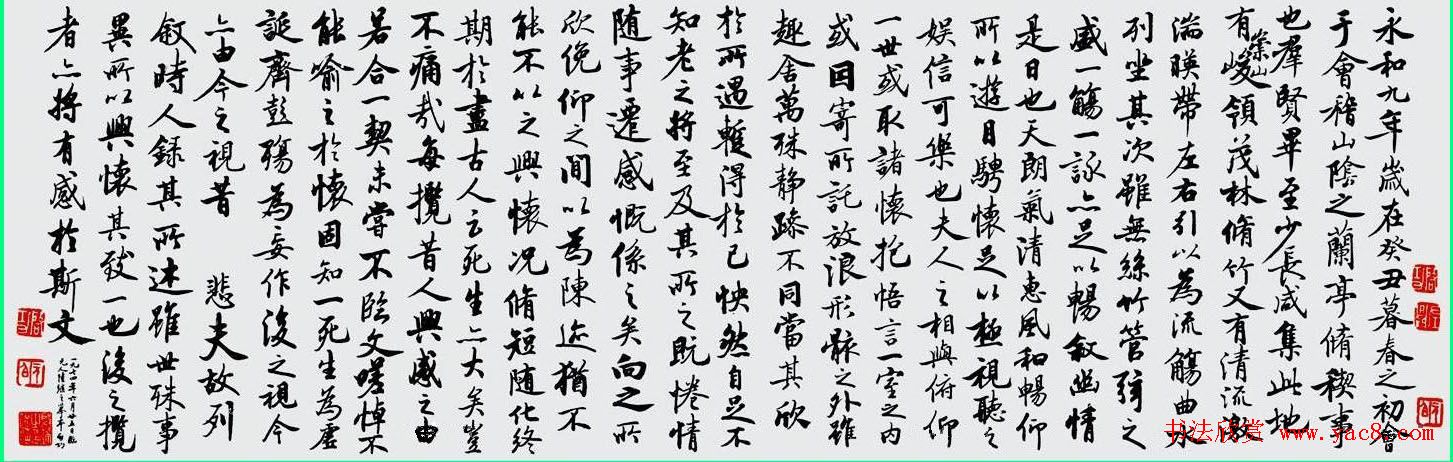 永和九年歲在癸丑暮春之初會
于會稽山陰之蘭亭脩稧事
也羣賢畢至少長咸集此地
有崇山峻領茂林脩竹又有清流激
湍暎帶左右引以為流觴曲水
列坐其次雖無絲竹管弦之
盛一觴一詠亦足以暢敘幽情
是日也天朗氣清惠風和暢仰
所以遊目騁懷足以極視聽之
娛信可樂也夫人之相與俯仰
一世或取諸懷抱悟言一室之內
或因寄所託放浪形骸之外雖
趣舍萬殊静躁不同當其欣
於所遇暫得於己怏然自足不
知老之將至及其所之既惓情
随事遷感慨係之矣向之所
欣俛仰之間以為陳迹猶不
能不以之興懷況脩短随化終
期於盡古人云死生亦大矣豈
不痛哉每攬昔人興感之由
若合一契未嘗不臨文嗟悼不
能喻之於懷固知一死生為虛
誕齊彭殤為妄作後之視今
亦由今之視昔 悲夫故列
敘時人錄其所述雖世殊事
異所以興懷其致一也後之攬
者亦將有感於斯文
书法欣赏 www.yac8.com